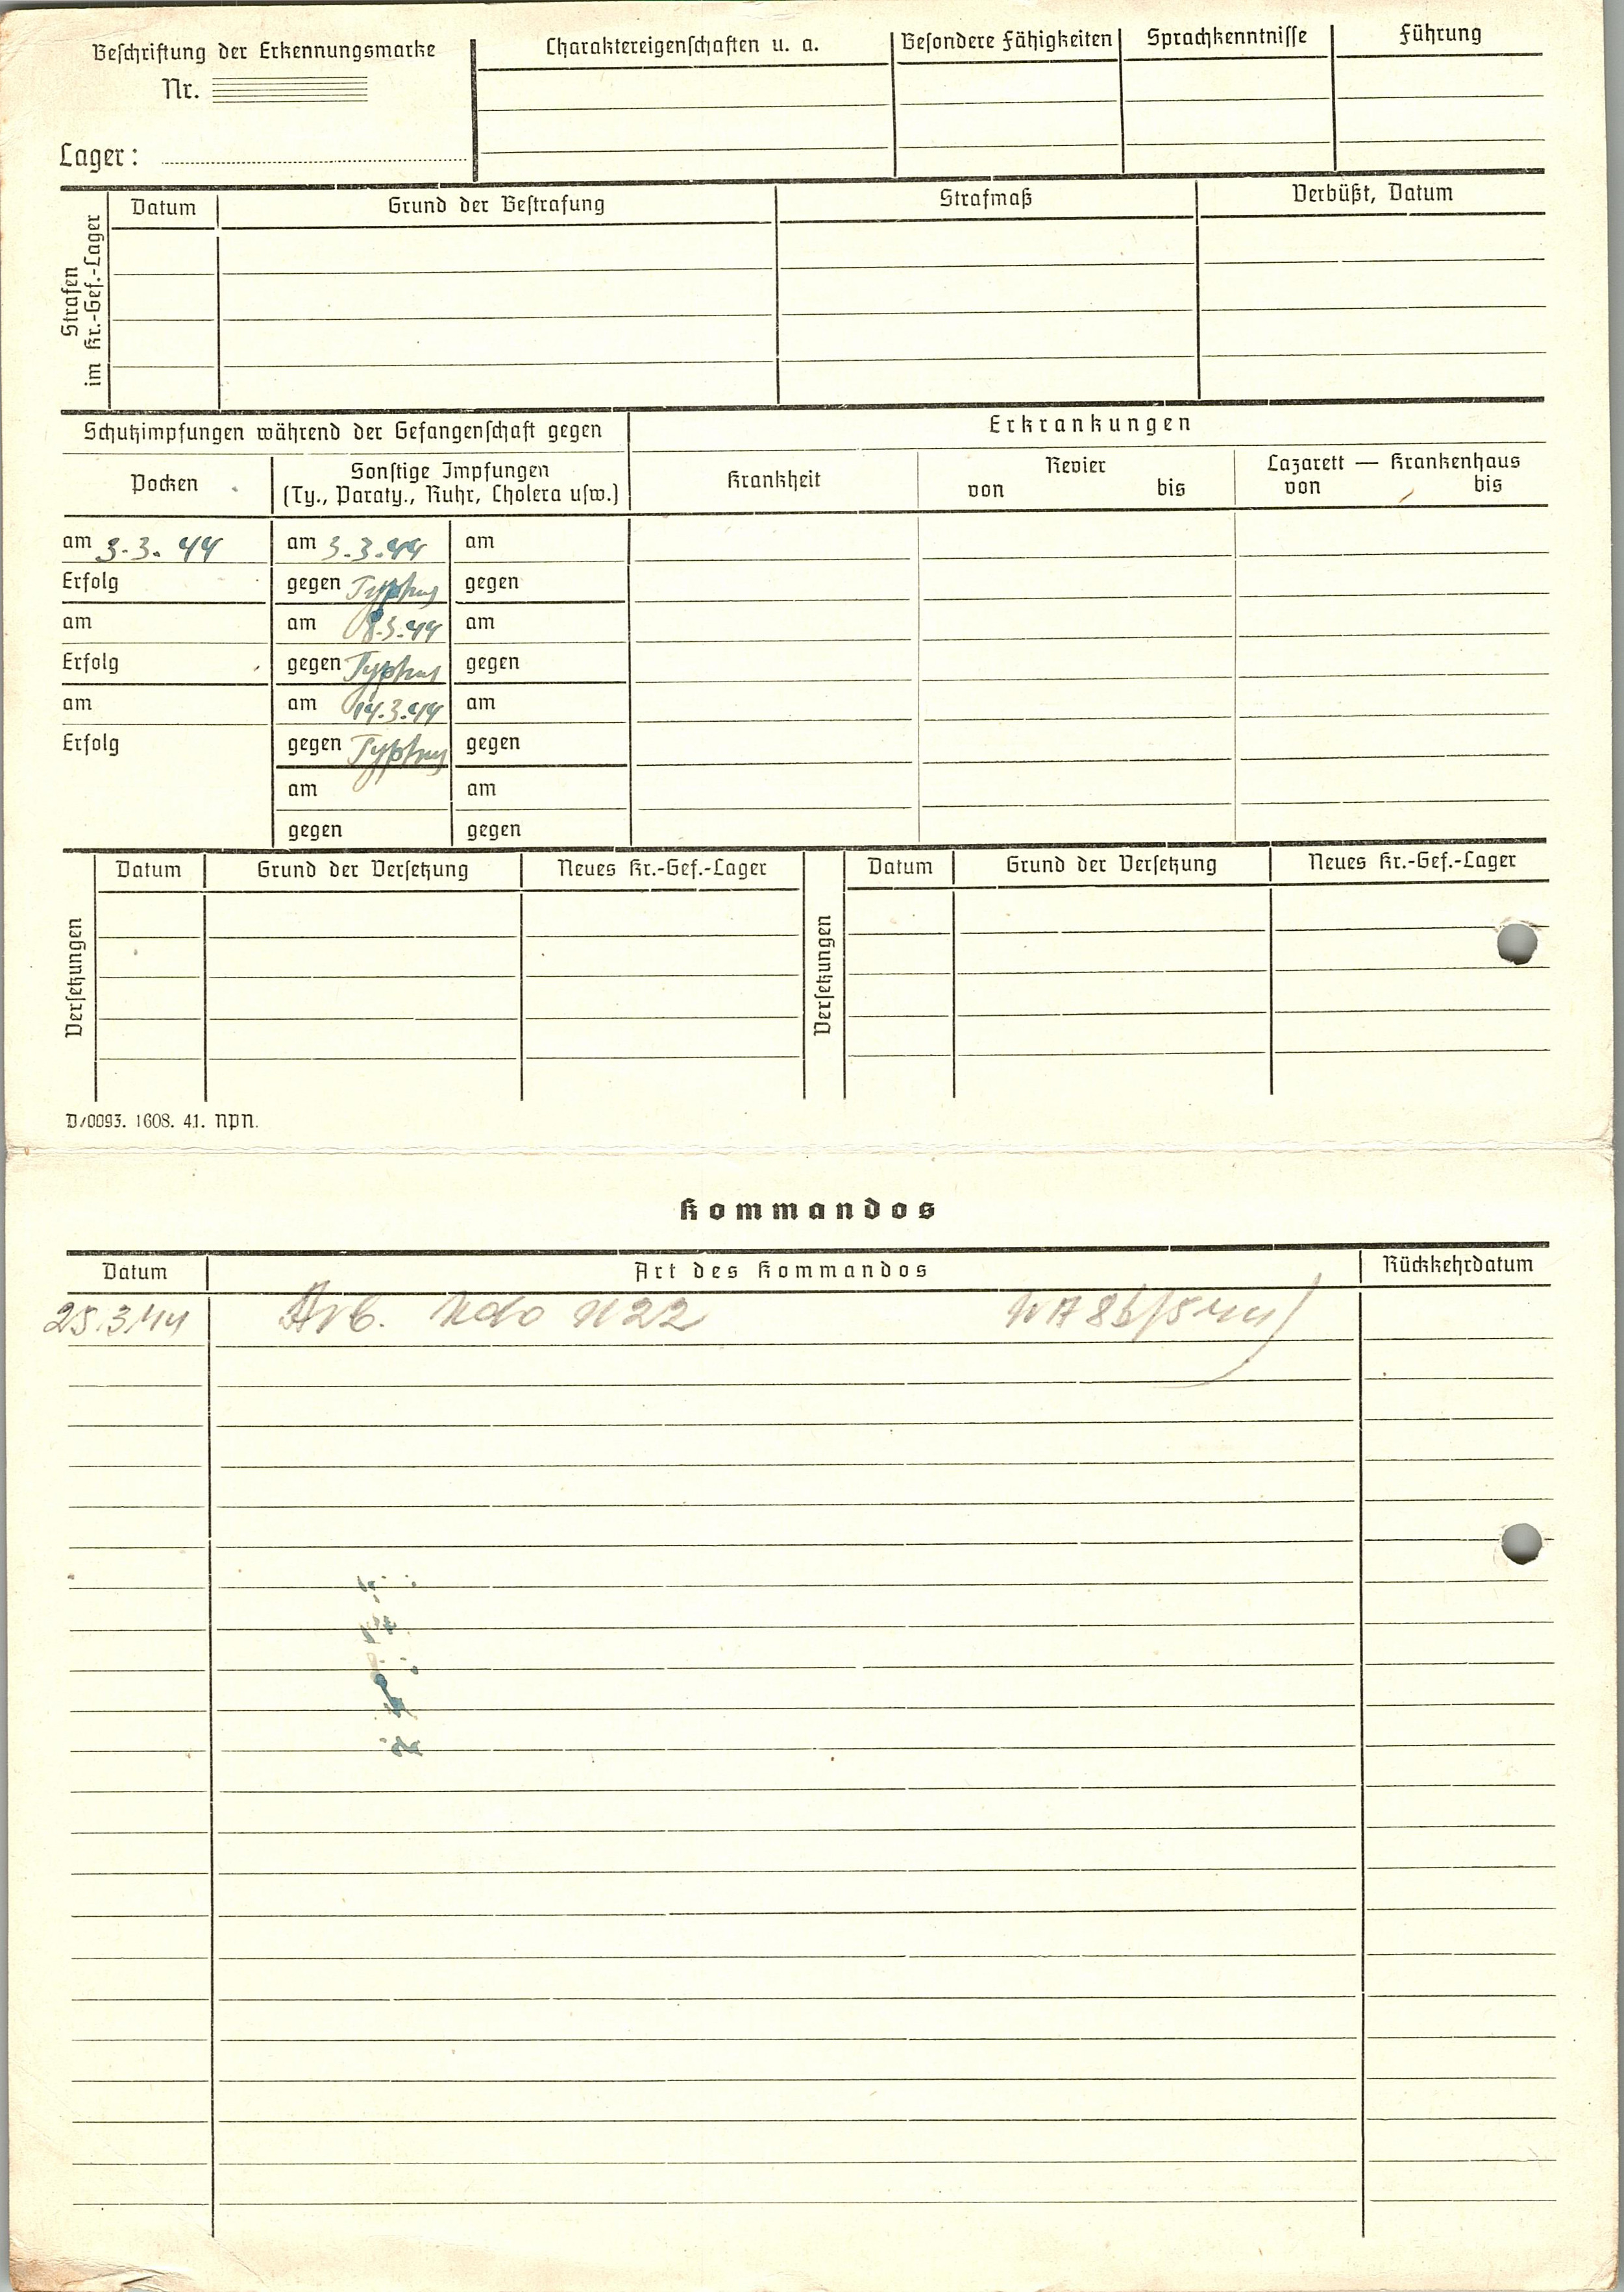 Beschriftung der Erkennungsmarke
Nr.
Lager:
Charaktereigenschaften u. a.
Besondere Fähigkeiten
Sprachkenntnisse
Führung
Strafen
im Kr.-Gef.-Lager
Datum
Grund der Bestrafung
Strafmaß
Verbüßt, Datum
Schutzimpfungen während der Gefangenschaft gegen
Erkrankungen
Pocken
Sonstige Impfungen
(Ty., Paraty., Ruhr, Cholera usw.)
Krankheit
Revier
von bis
Lazarett — Krankenhaus
von bis
am 3.3.44 am 3.3.44 am
Erfolg gegen Typhus gegen
am am 8.3.44 am
Erfolg gegen Typhus gegen
am am 14.3.44 am
Erfolg gegen Typhus gegen
am am
gegen gegen
Versetzungen
Datum Grund der Versetzung Neues Kr.-Gef.-Lager
Versetzungen
Datum Grund der Versetzung Neues Kr.-Gef.-Lager
D/0093. 1608. 41. NPN.
Kommandos
Datum Art des Kommandos Rückkehrdatum
25.3.44 Arb. Kdo